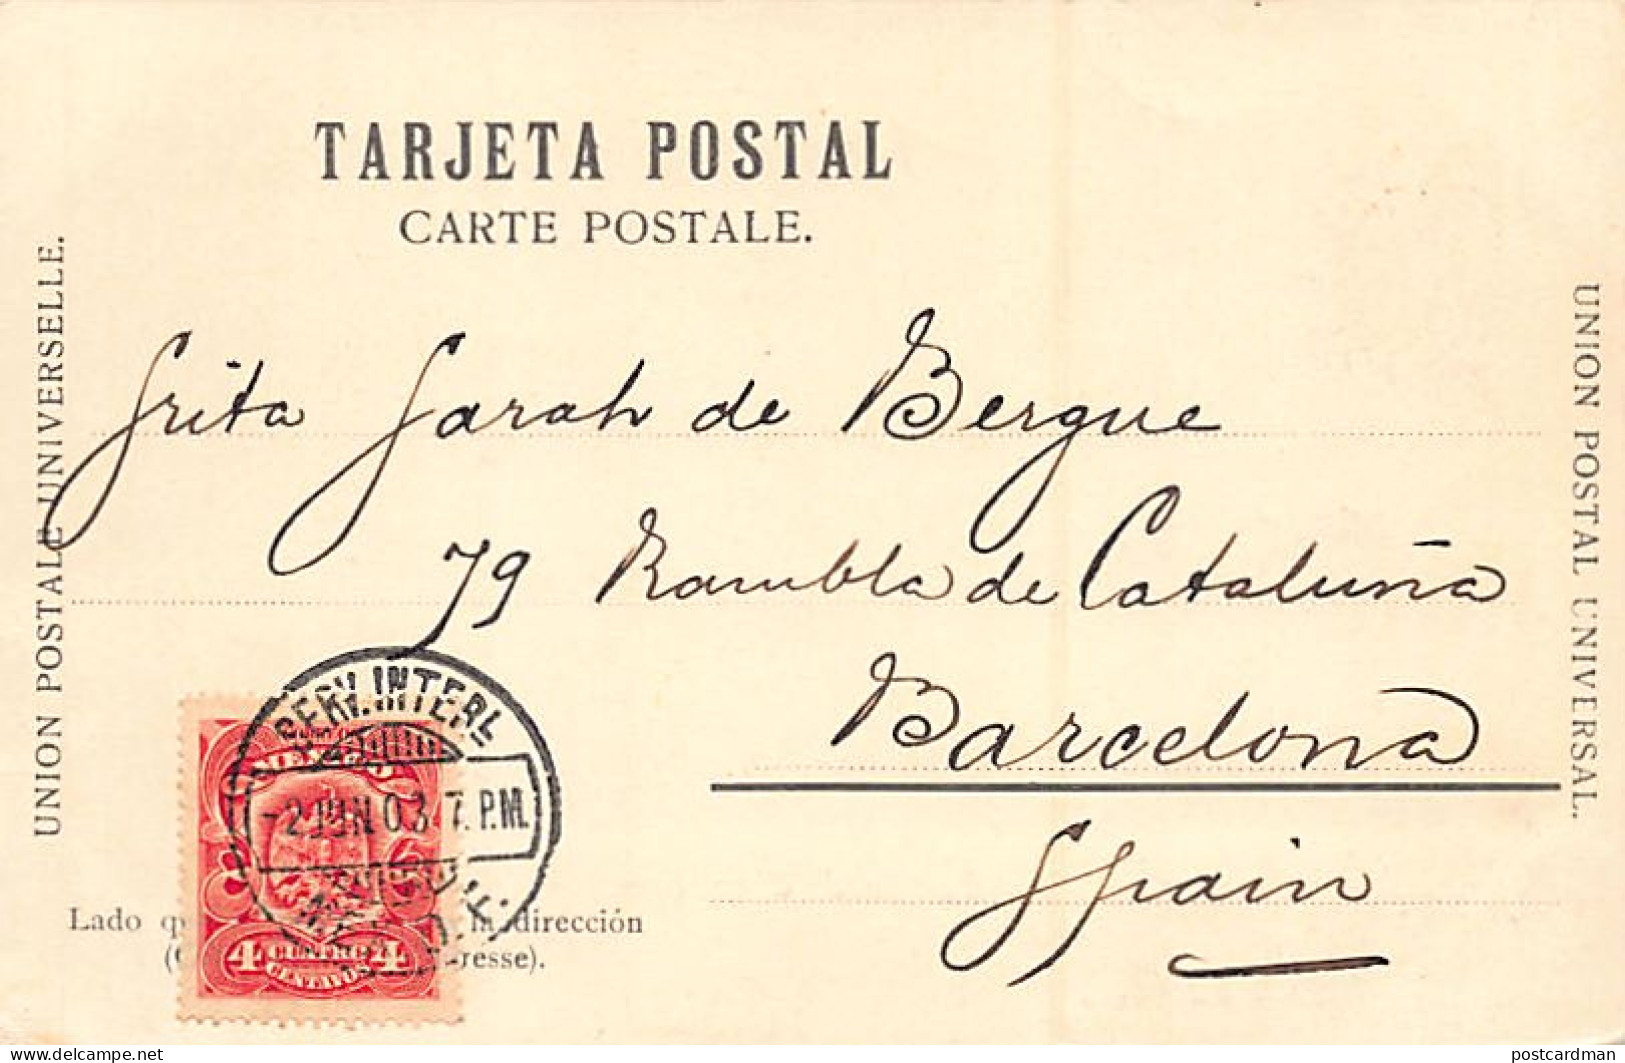 TARJETA POSTAL
CARTE POSTALE.
UNION POSTALE UNIVERSELLE.
UNION POSTAL UNIVERSAL.
Srita Sarah de Bergue
79 Rambla de Cataluña
Barcelona
Spain
SERV. INTERL
-2 JUN 03 7. P.M.
MEXICO
4 CUATRO 4
CENTAVOS
Lado q la dirección
resse).
www.delcampe.net
postcardman